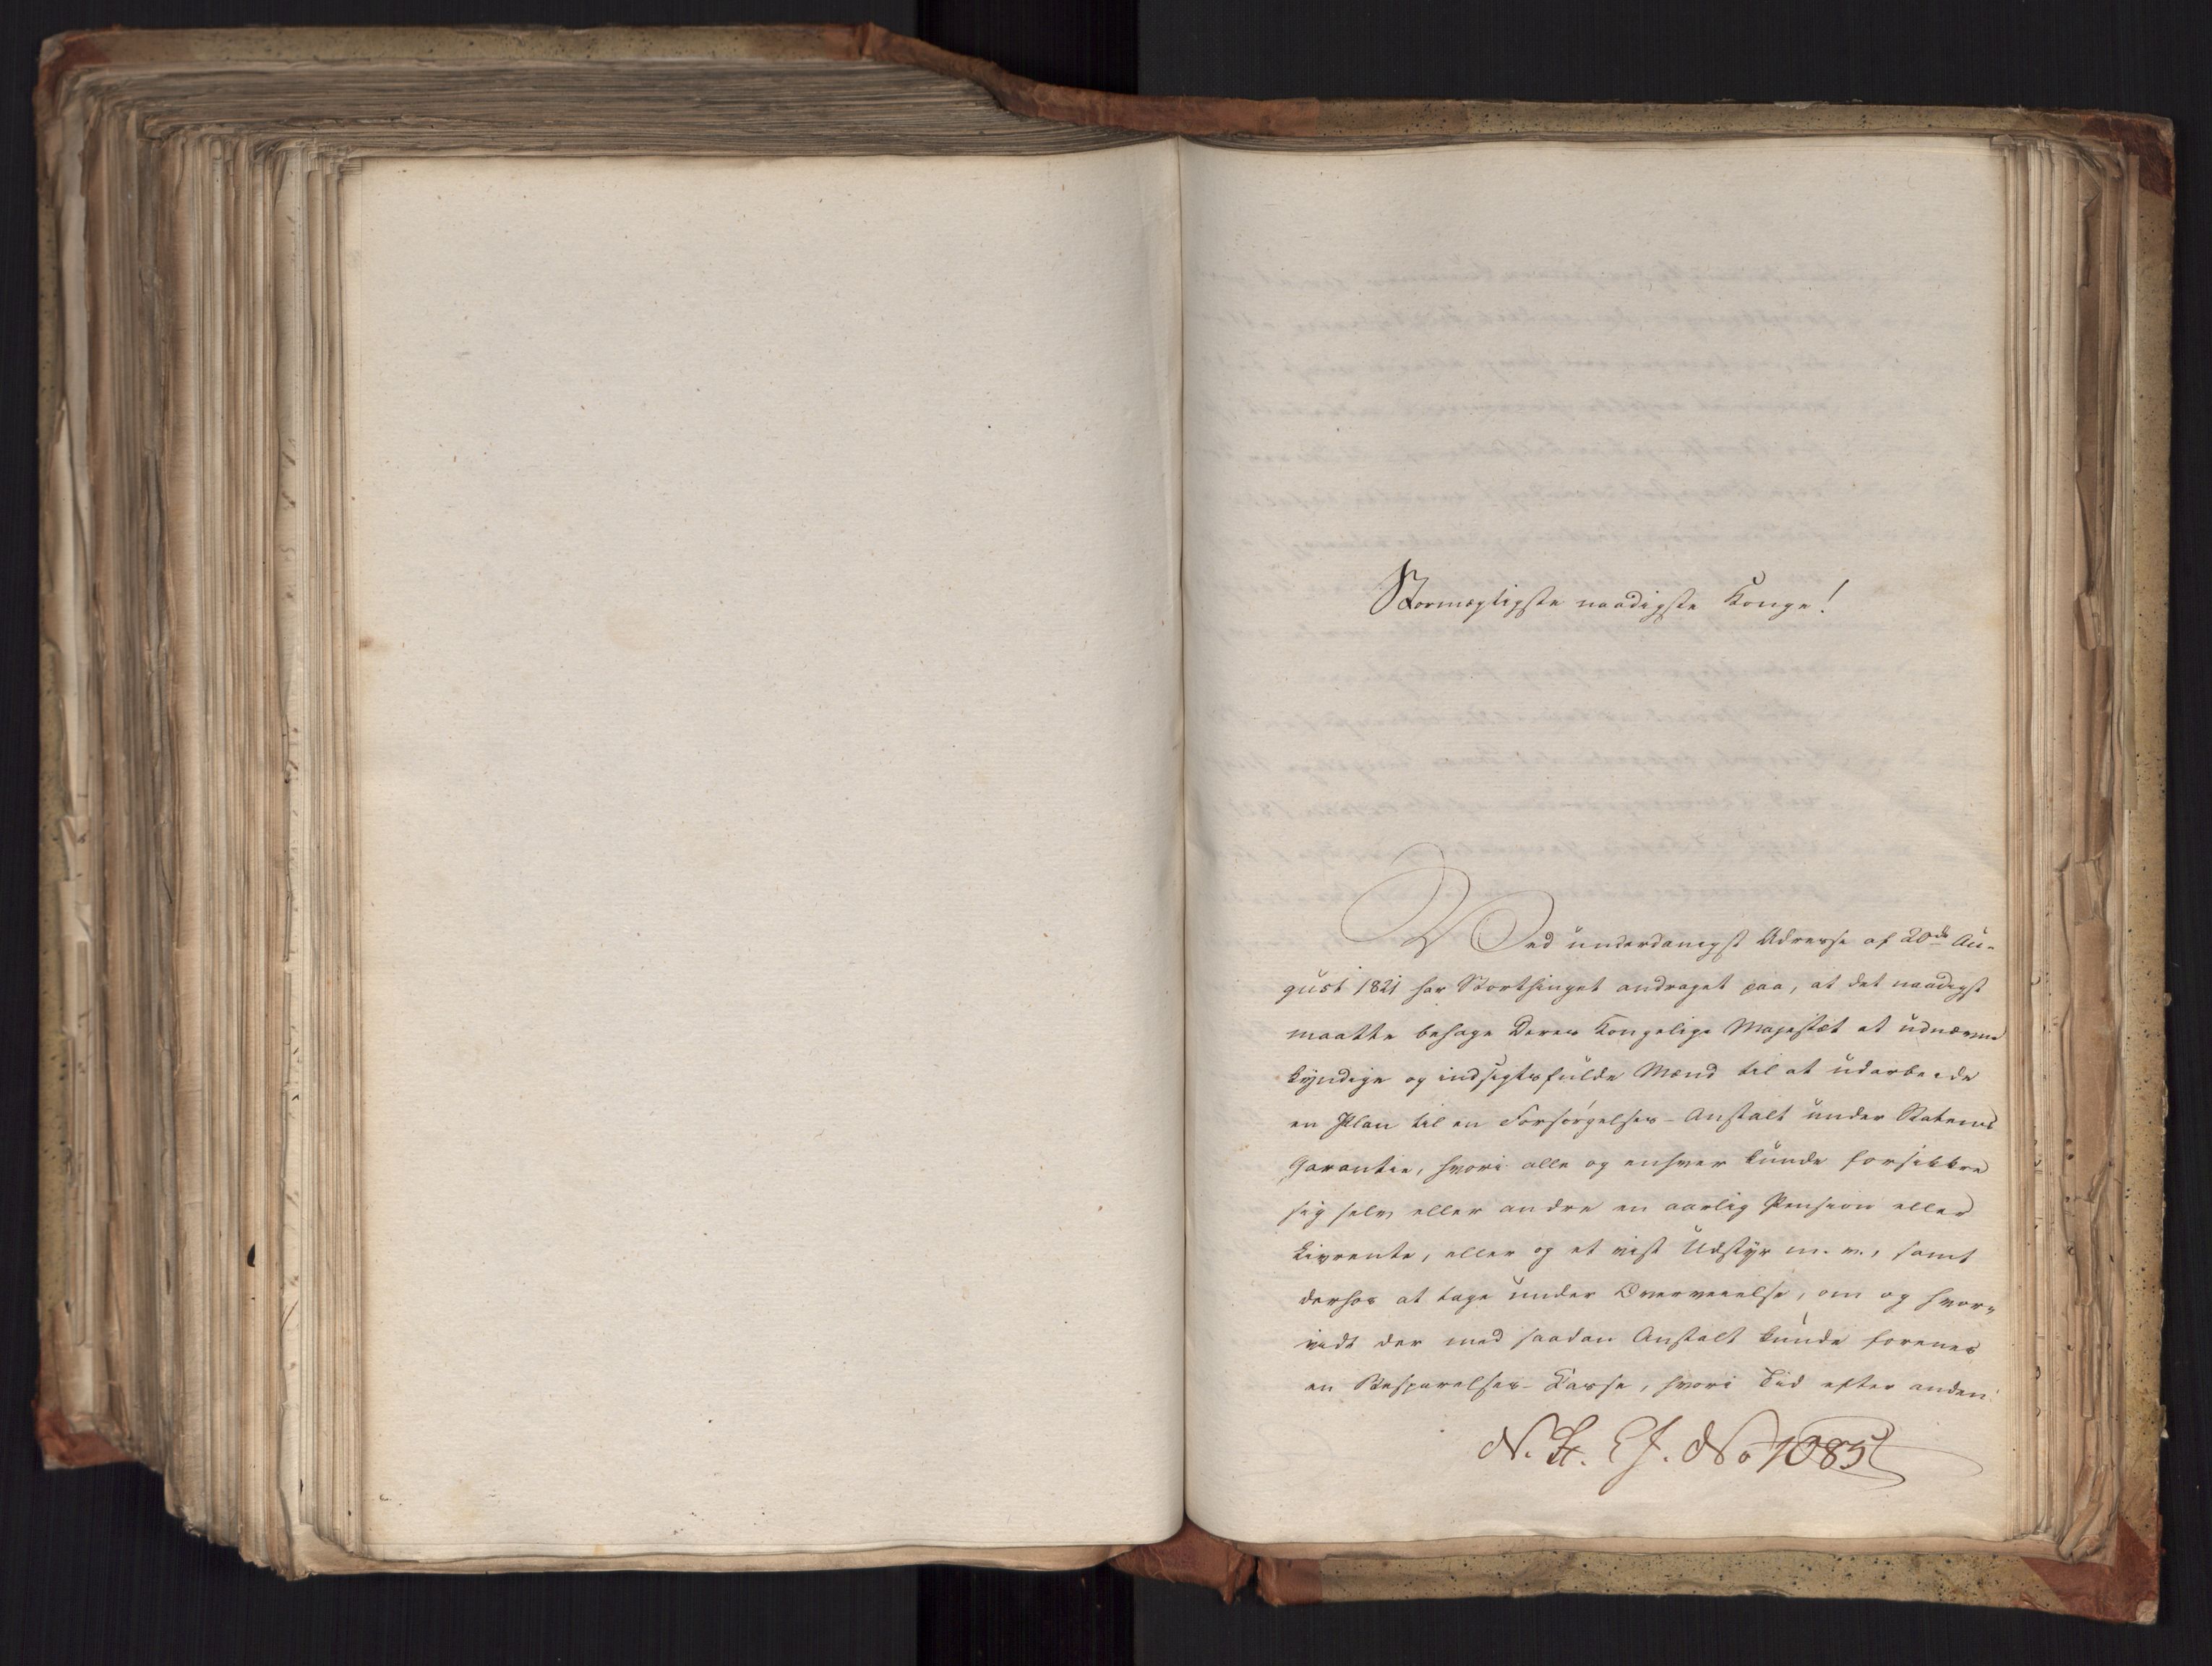 Stormægtigste naadigste Konge!
Ved underdanigst Adresse af 20de Au-
gust 1821 har Storthinget andraget paa, at det naadigst
maatte behage Deres Kongelige Majestæt at udnævne
kyndige og indsigtsfulde Mænd til at udarbeide
en Plan til en Forsørgelses-Anstalt under Statens
Garantie, hvori alle og enhver kunde forsikkre
sig selv eller andre en aarlig Pension eller
Livrente, eller og et vist Udstyr m. v., samt
derhos at tage under Overveielse, om og hvor-
vidt der med saadan Anstalt kunde forenes
en Besparelses-Casse, hvori Tid efter anden
N. St. Ex. No 1085